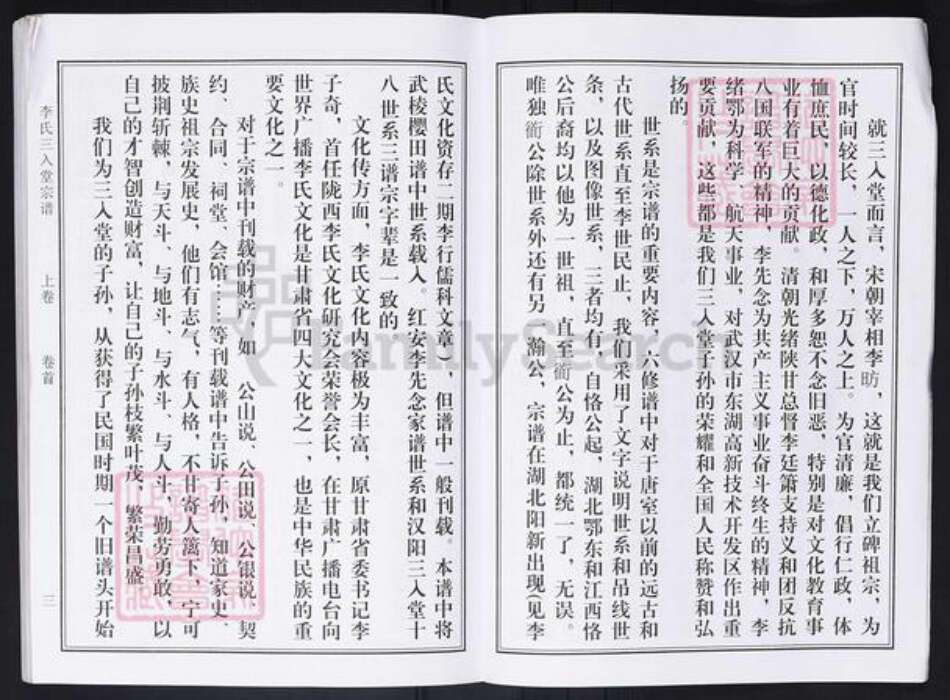 就三入堂而言，宋朝宰相李昉，这就是我们立碑祖宗，为
官时间较长，一人之下，万人之上。为官清廉，倡行仁政，体
恤庶民，以德化政，和厚多恕不念旧恶，特别是对文化教育事
业有着巨大的贡献。清朝光绪陕甘总督李廷箫支持义和团反抗
八国联军的精神，李先念为共产主义事业奋斗终生的精神，李
绪鄂为科学 航天事业，对武汉市东湖高新技术开发区作出重
要贡献，这些都是我们三入堂子孙的荣耀和全国人民称赞和弘
扬的。
世系是宗谱的重要内容，六修谱中对于唐室以前的远古和
古代世系直至李世民止，我们采用了文字说明世系和吊线世
条，以及图像世系，三者均有，自恪公起，湖北鄂东和江西恪
公后裔均以他为一世祖，直至衝公为止，都统一了，无误。
唯独衝公除世系外还有另 瀚公、宗谱在湖北阳新出现（见李
氏文化资存二期李行儒科文章），但谱中一般刊载。本谱中将
武棱樱田谱中世系载入。红安李先念家谱世系和汉阳三入堂十
八世系三谱宗字辈是一致的
文化传方面，李氏文化内容极为丰富，原甘肃省委书记李
子奇，首任陇西李氏文化研究会荣誉会长，在甘肃广播电台向
世界广播李氏文化是甘肃省四大文化之一，也是中华民族的重
要文化之一。
对于宗谱中刊载的财产，如 公山说、公田说、公银说、契
约、合同、祠堂、会馆……等刊载谱中告诉子孙，知道家史、
族史祖宗发展史，他们有志气，有人格，不甘寄人篱下，宁可
披荆斩棘，与天斗、与地斗、与水斗、与人斗，勤劳勇敢，以
自己的才智创造财富，让自己的子孙枝繁叶茂，繁荣昌盛
我们为三入堂的子孙，从获得了民国时期一个旧谱头开始
李氏三入堂宗谱 上卷 卷首 三
FamilySearch